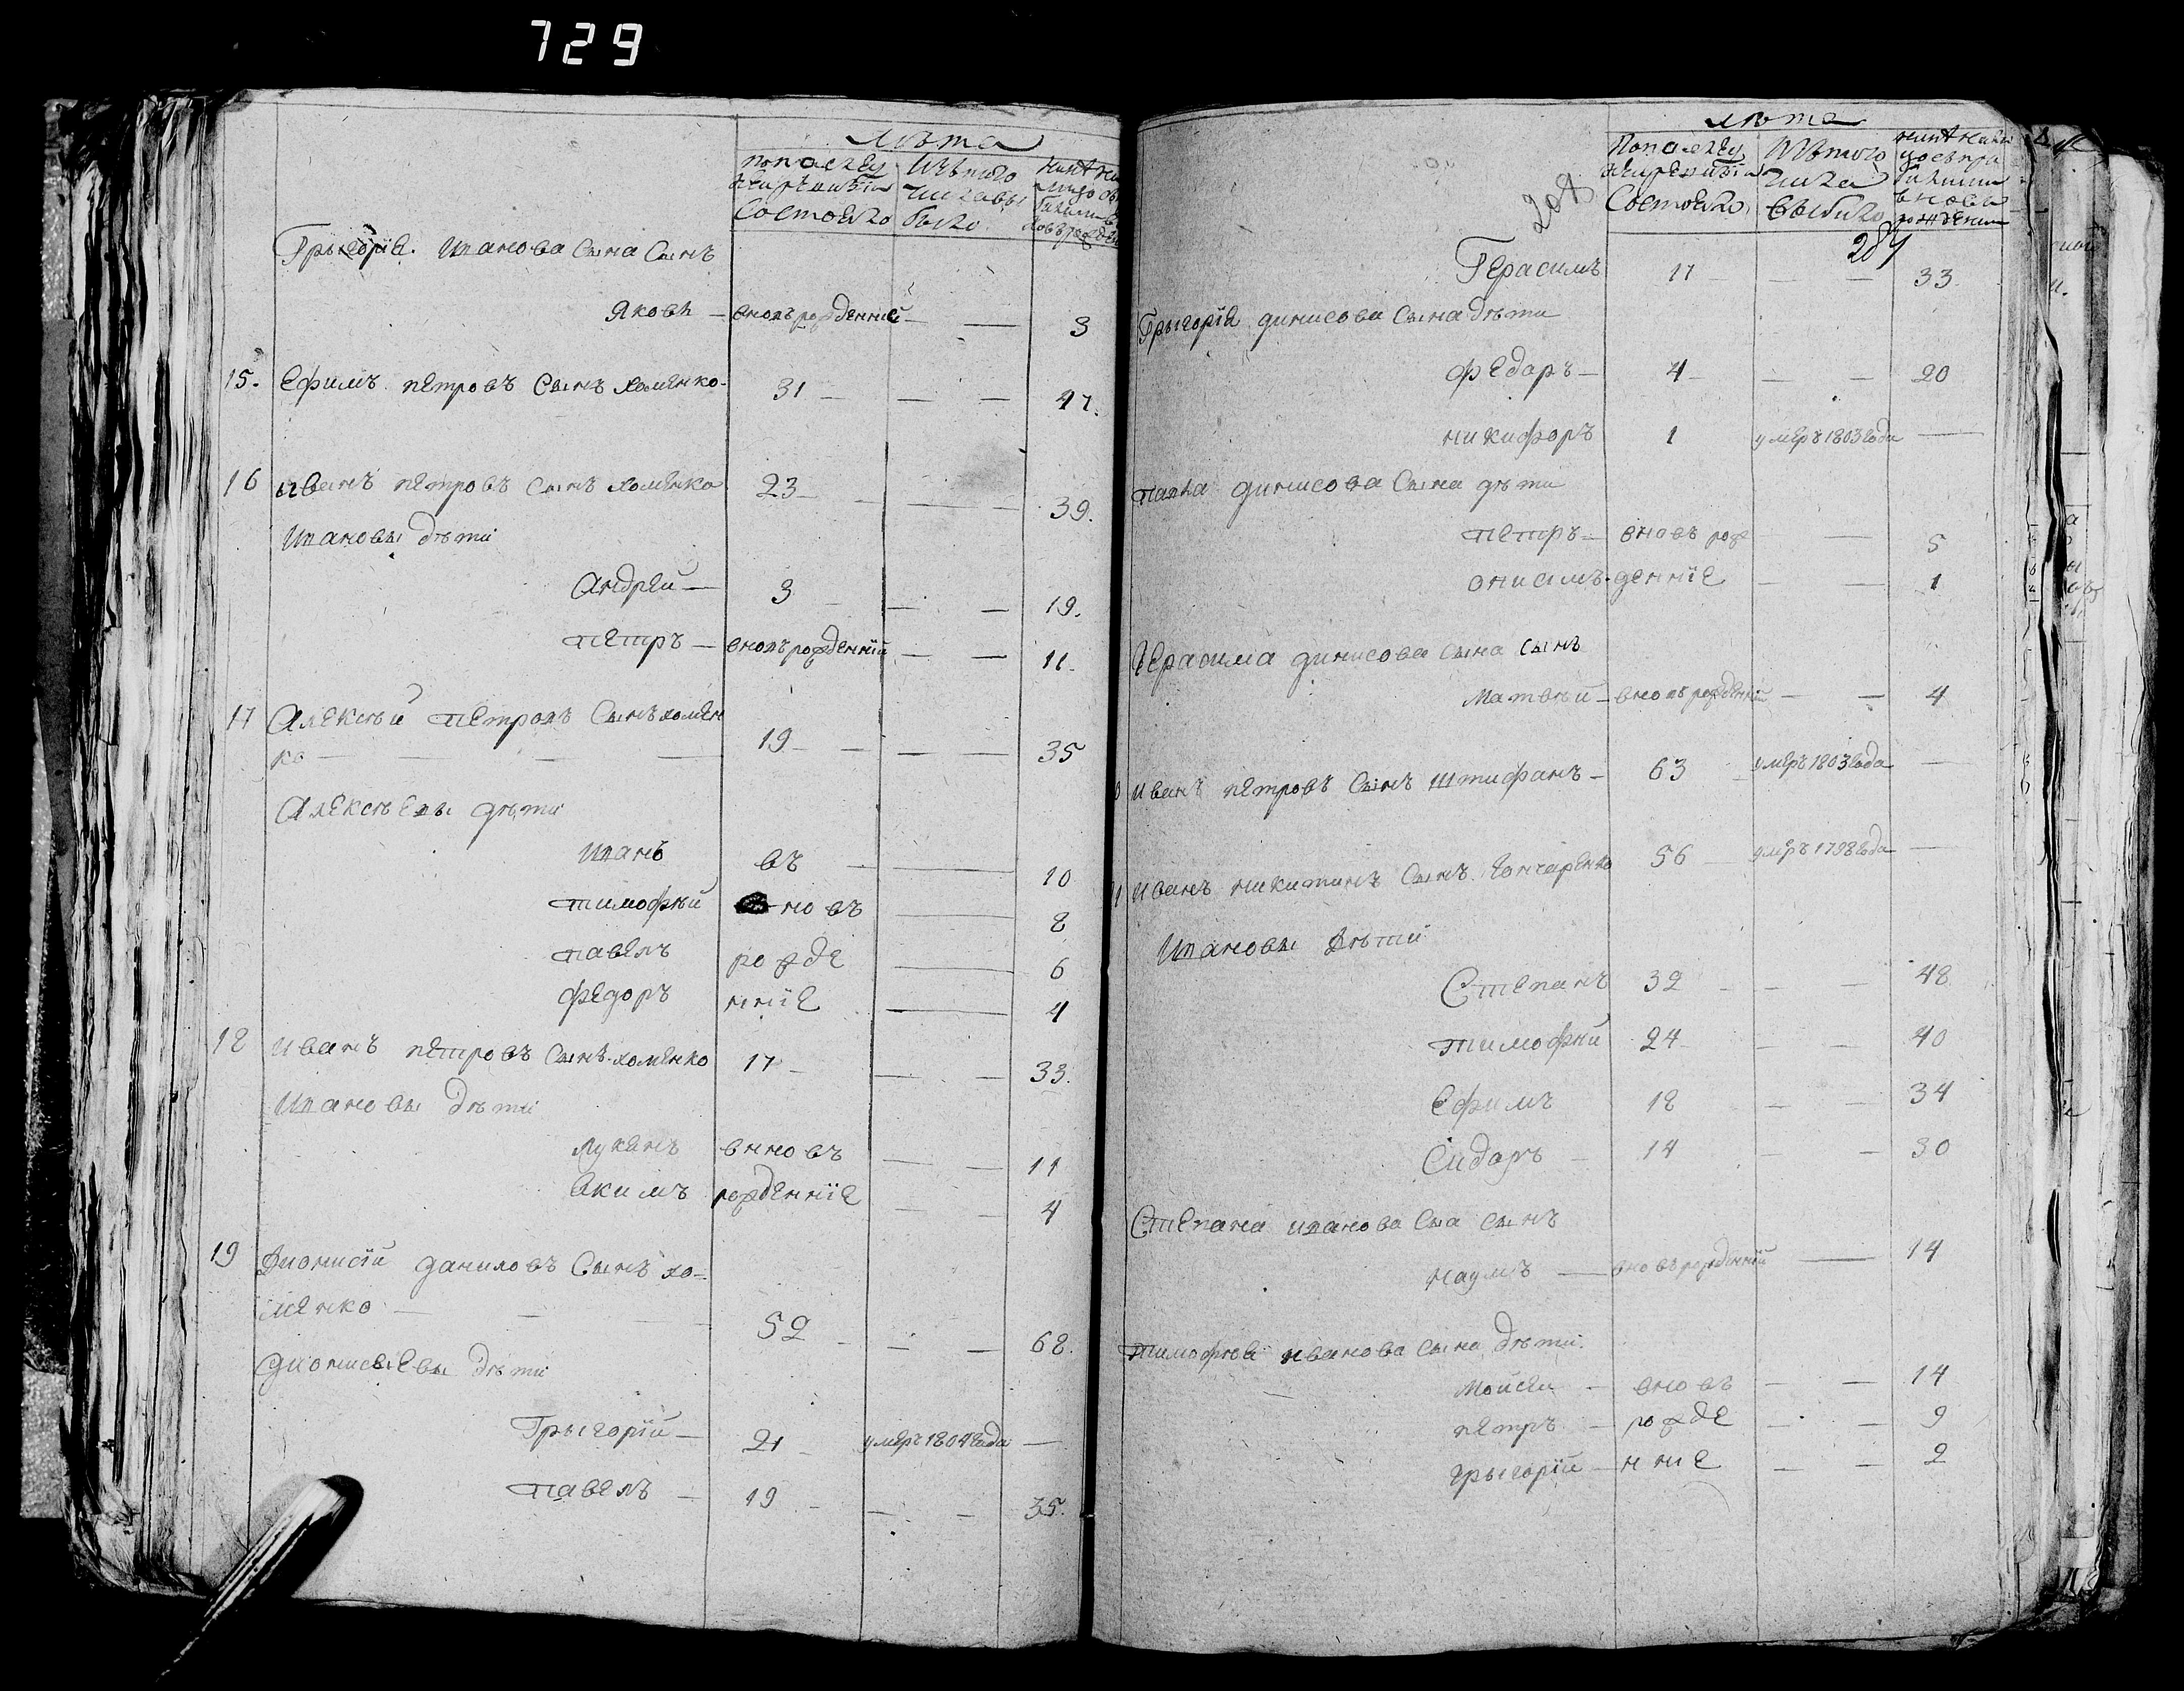 729
лѣта
по последней ревизіи состояло
изъ того числа выбыло
Грыгорія Иванова Сына Сынъ
Яковъ — вновъ рожденній — — 3
15. Ефимъ петровъ Сынъ хоменко 31 — — 47.
16 Иванъ петровъ Сынъ хоменко 23 — — 39.
Ивановы дѣти
Андрей — 3 — — 19.
петръ — вновъ рожденній — — 11.
17 Алексѣй петровъ Сынъ хомен
ко — — — 19 — — 35
Алексѣевы дѣти
Иванъ въ — 10
тимофѣй новъ — 8
павелъ рожде — 6
федоръ нніе — 4
18 иванъ петровъ Сынъ хоменко 17 — — 33.
Ивановы дѣти
Лукянъ вновъ — — 11
Екимъ рожденніе — — 4
19 Дионисій даниловъ Сынъ хо=
менко — — — 52 — — 68.
Дионисьевы дѣти
Грыгорій — 21 — умеръ 1804 года —
павелъ — 19 — — — 35.
204
лѣта
По последней ревизіи Состояло
Изъ того числа выбыло
284
Герасимъ 17 — — 33
Грыгорія динисова Сына дѣти
федаръ — 4 — — — 20
никифоръ 1 умеръ 1803 года —
павла динисова Сына дѣти
петръ — вновъ рож — 5
онисимъ денніе — — 1
Герасима динисова Сына сынъ
Матвѣй — вновъ рожденній — — 4
0 Иванъ петровъ Сынъ Штифанъ — 63 — умеръ 1803 года —
1 Иванъ никитинъ Сынъ Гончаренко 56 — умеръ 1798 года —
Ивановы Дѣти
Степанъ 32 — — — 48
тимофѣй 24 — — — 40
Ефимъ 18 — — 34
Сидаръ — 14 — — 30
Степана иванова Сна сынъ
Наумъ — вновъ рожденній — 14
тимофѣя иванова сына дѣти
Мойсей — вновъ — — 14
петръ — рожде — — 9
грыгорій — нніе — — 2